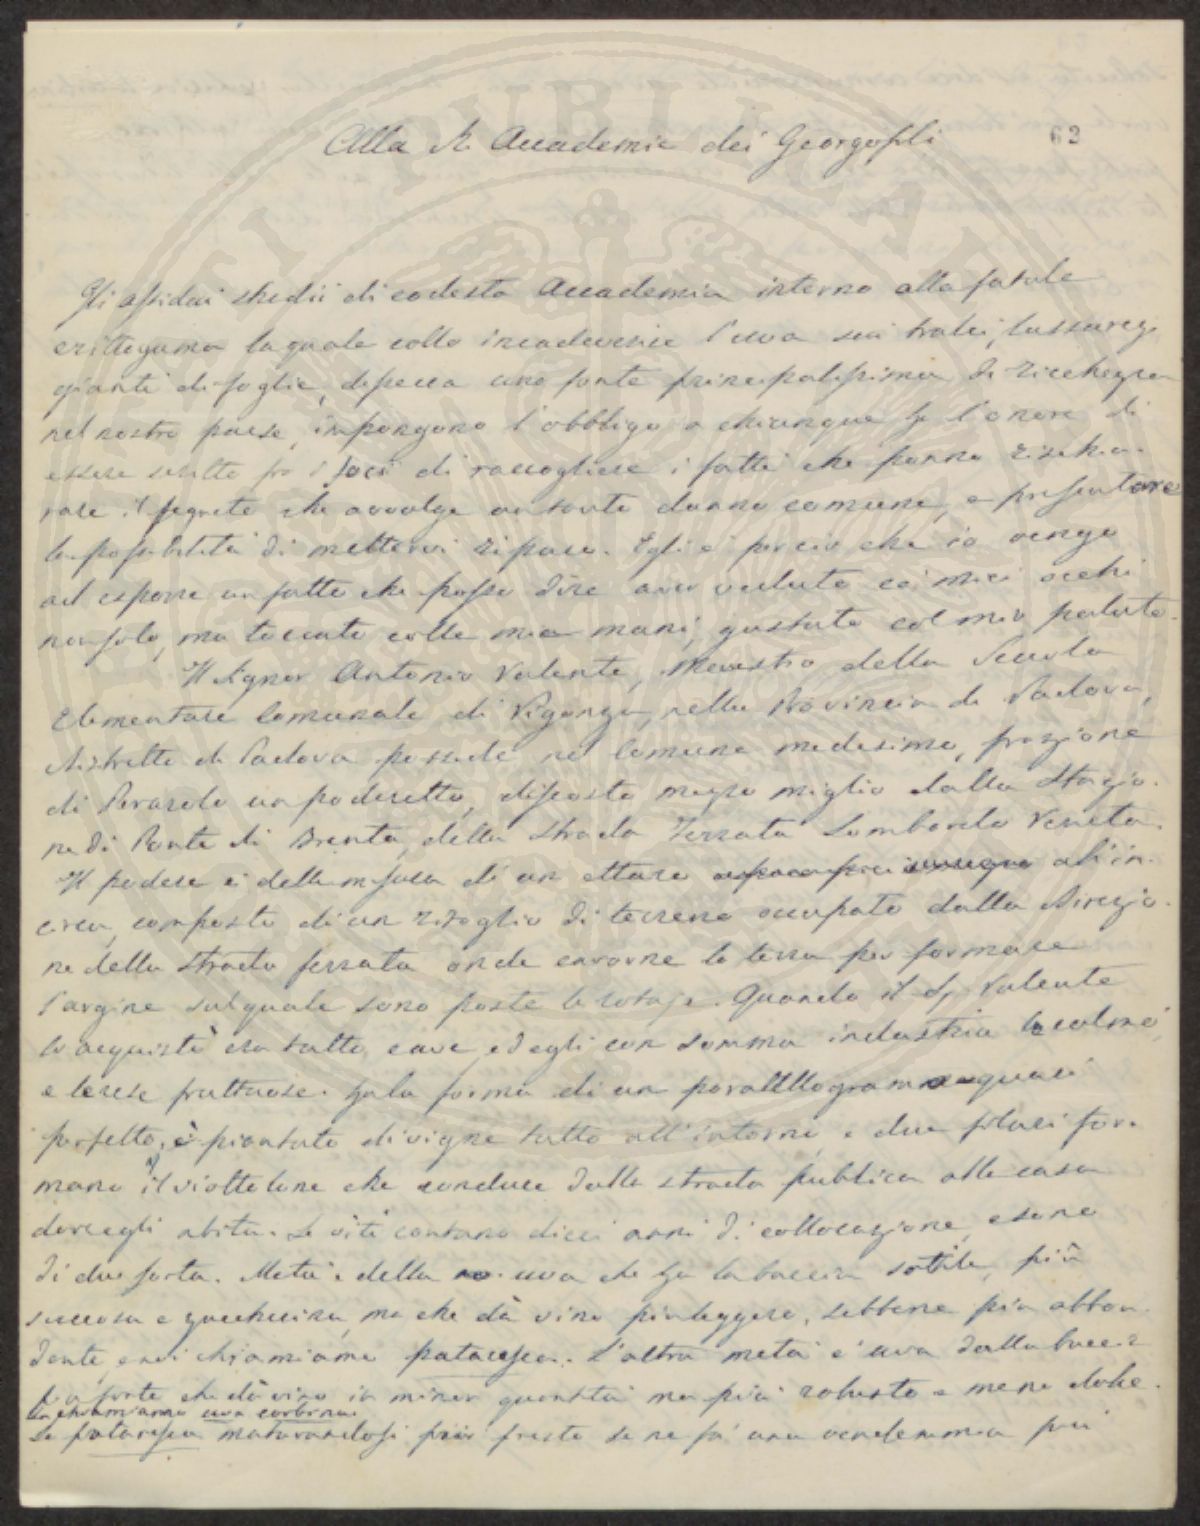 Alla R. Accademia dei Georgofili
62
Gli assidui studii di codesta Accademia intorno alla fatale
crittogama la quale colla incadaverire l'uva sui tralci, lussureg-
gianti di foglie, dissecca una fonte principalissima di ricchezza
nel nostro paese, impongono l'obbligo a chiunque ha l'onore di
essere scritto fra i soci di raccogliere i fatti che ponno rischia-
rare il segreto che avvolge un tanto danno comune, e presentare
la possibilità di mettervi riparo. Egli è perciò che io vengo
ad esporre un fatto che posso dire aver veduto coi miei occhi
non solo, ma toccato colle mie mani, gustato col mio palato.
Il Signor Antonio Valente, Maestro della Scuola
Elementare Comunale di Vigonza, nella Provincia di Padova,
distretto di Padova possede nel Comune medesimo, frazione
di Perarolo un poderetto, discosto mezzo miglio dalla Stazio-
ne di Ponte di Brenta, della Strada Ferrata Lombardo Veneta.
Il podere è della misura di un ettaro all'in-
circa, composto di un ritaglio di terreno occupato dalla Direzio-
ne della Strada ferrata onde cavarne la terra per formare
l'argine sul quale sono poste le rotaje. Quando il Sr. Valente
lo acquistò era tutto cave, ed egli con somma industria lo colmò,
e lo rese fruttuoso. Ha la forma di un paralellogrammo quasi
perfetto, è piantato di vigne tutto all'intorno, e due filari for-
mano il viottolone che conduce dalla strada pubblica alla casa
dov'egli abita. Le viti contano dieci anni di collocazione, e sono
di due sorta. Metà è della uva che ha la buccia sottile, più
succosa e zuccherina, ma che dà vino più leggero, sebbene più abbon-
dante, e noi chiamiamo pataresca. L'altra metà è uva dalla buccia
più forte che dà vino in minor quantità ma più robusto e meno dolce.
la chiamiamo uva corbina.
La pataresca maturandosi più presto se ne fa una vendemmia più